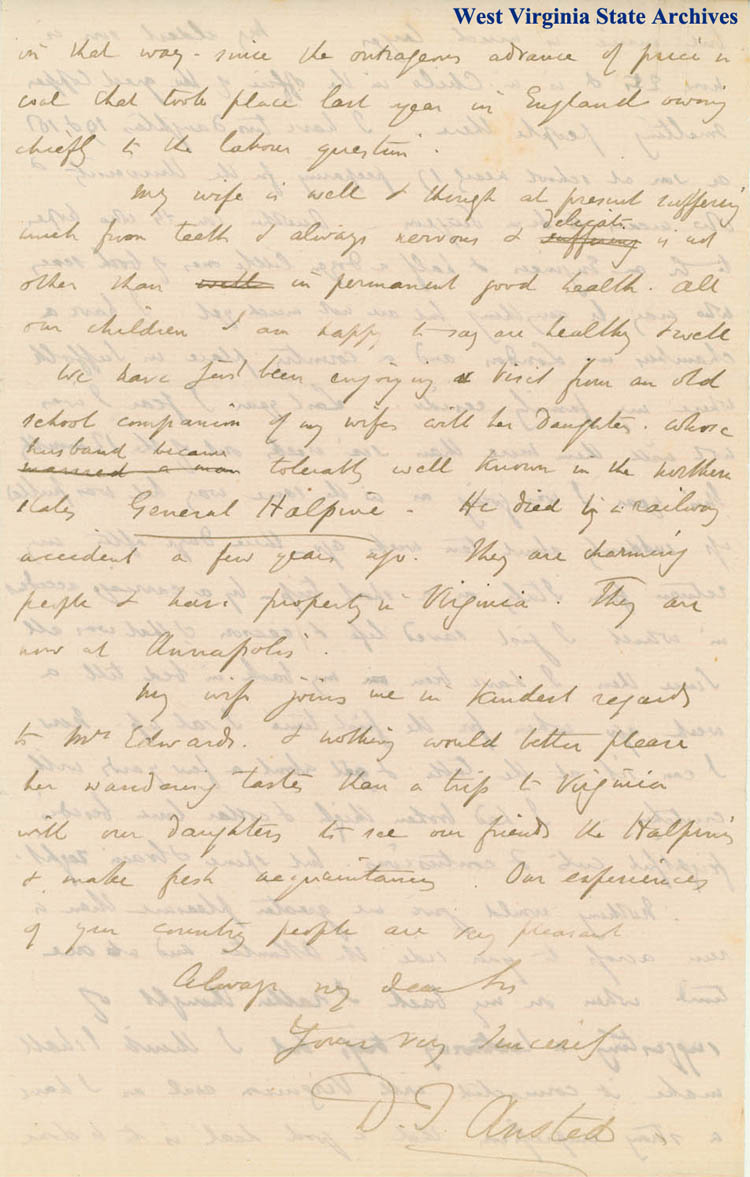 West Virginia State Archives
in that way - since the outrageous advance of price in
coal that took place last year in England owing
chiefly to the labour question.
My wife is well & though at present suffering
much from teeth & always nervous & suffering delicate is not
other than with in permanent good health. All
our children I am happy to say are healthy & well
We have just been enjoying a visit from an old
school companion of my wifes with her daughter. whose
married a man husband became tolerably well known in the northern
States General Halpine - He died by a railway
accident a few years ago. They are charming
people & have property in Virginia. They are
now at Annapolis.
My wife joins me in kindest regards
to Mrs Edwards. & nothing would better please
her wandering tastes than a trip to Virginia
with our daughters to see our friends the Halpines
& make fresh acquaintances. Our experiences
of your country people are very pleasant
Always my dear Sir
Yours very sincerely
D T Ansted